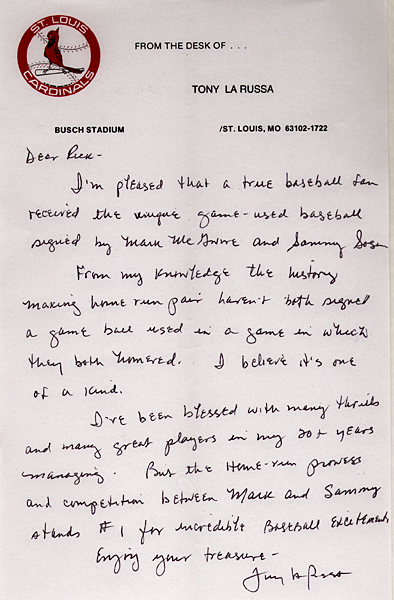 ST. LOUIS
CARDINALS
FROM THE DESK OF . . .
TONY LA RUSSA
BUSCH STADIUM /ST. LOUIS, MO 63102-1722
Dear Rick -
I'm pleased that a true baseball fan
received the unique game-used baseball
signed by Mark McGwire and Sammy Sosa
From my knowledge the history
making home run pair haven't both signed
a game ball used in a game in which
they both homered. I believe it's one
of a kind.
I've been blessed with many thrills
and many great players in my 20+ years
managing. But the Home-run prowess
and competition between Mark and Sammy
stands #1 for incredible Baseball Excitement
Enjoy your treasure -
Tony La Russa